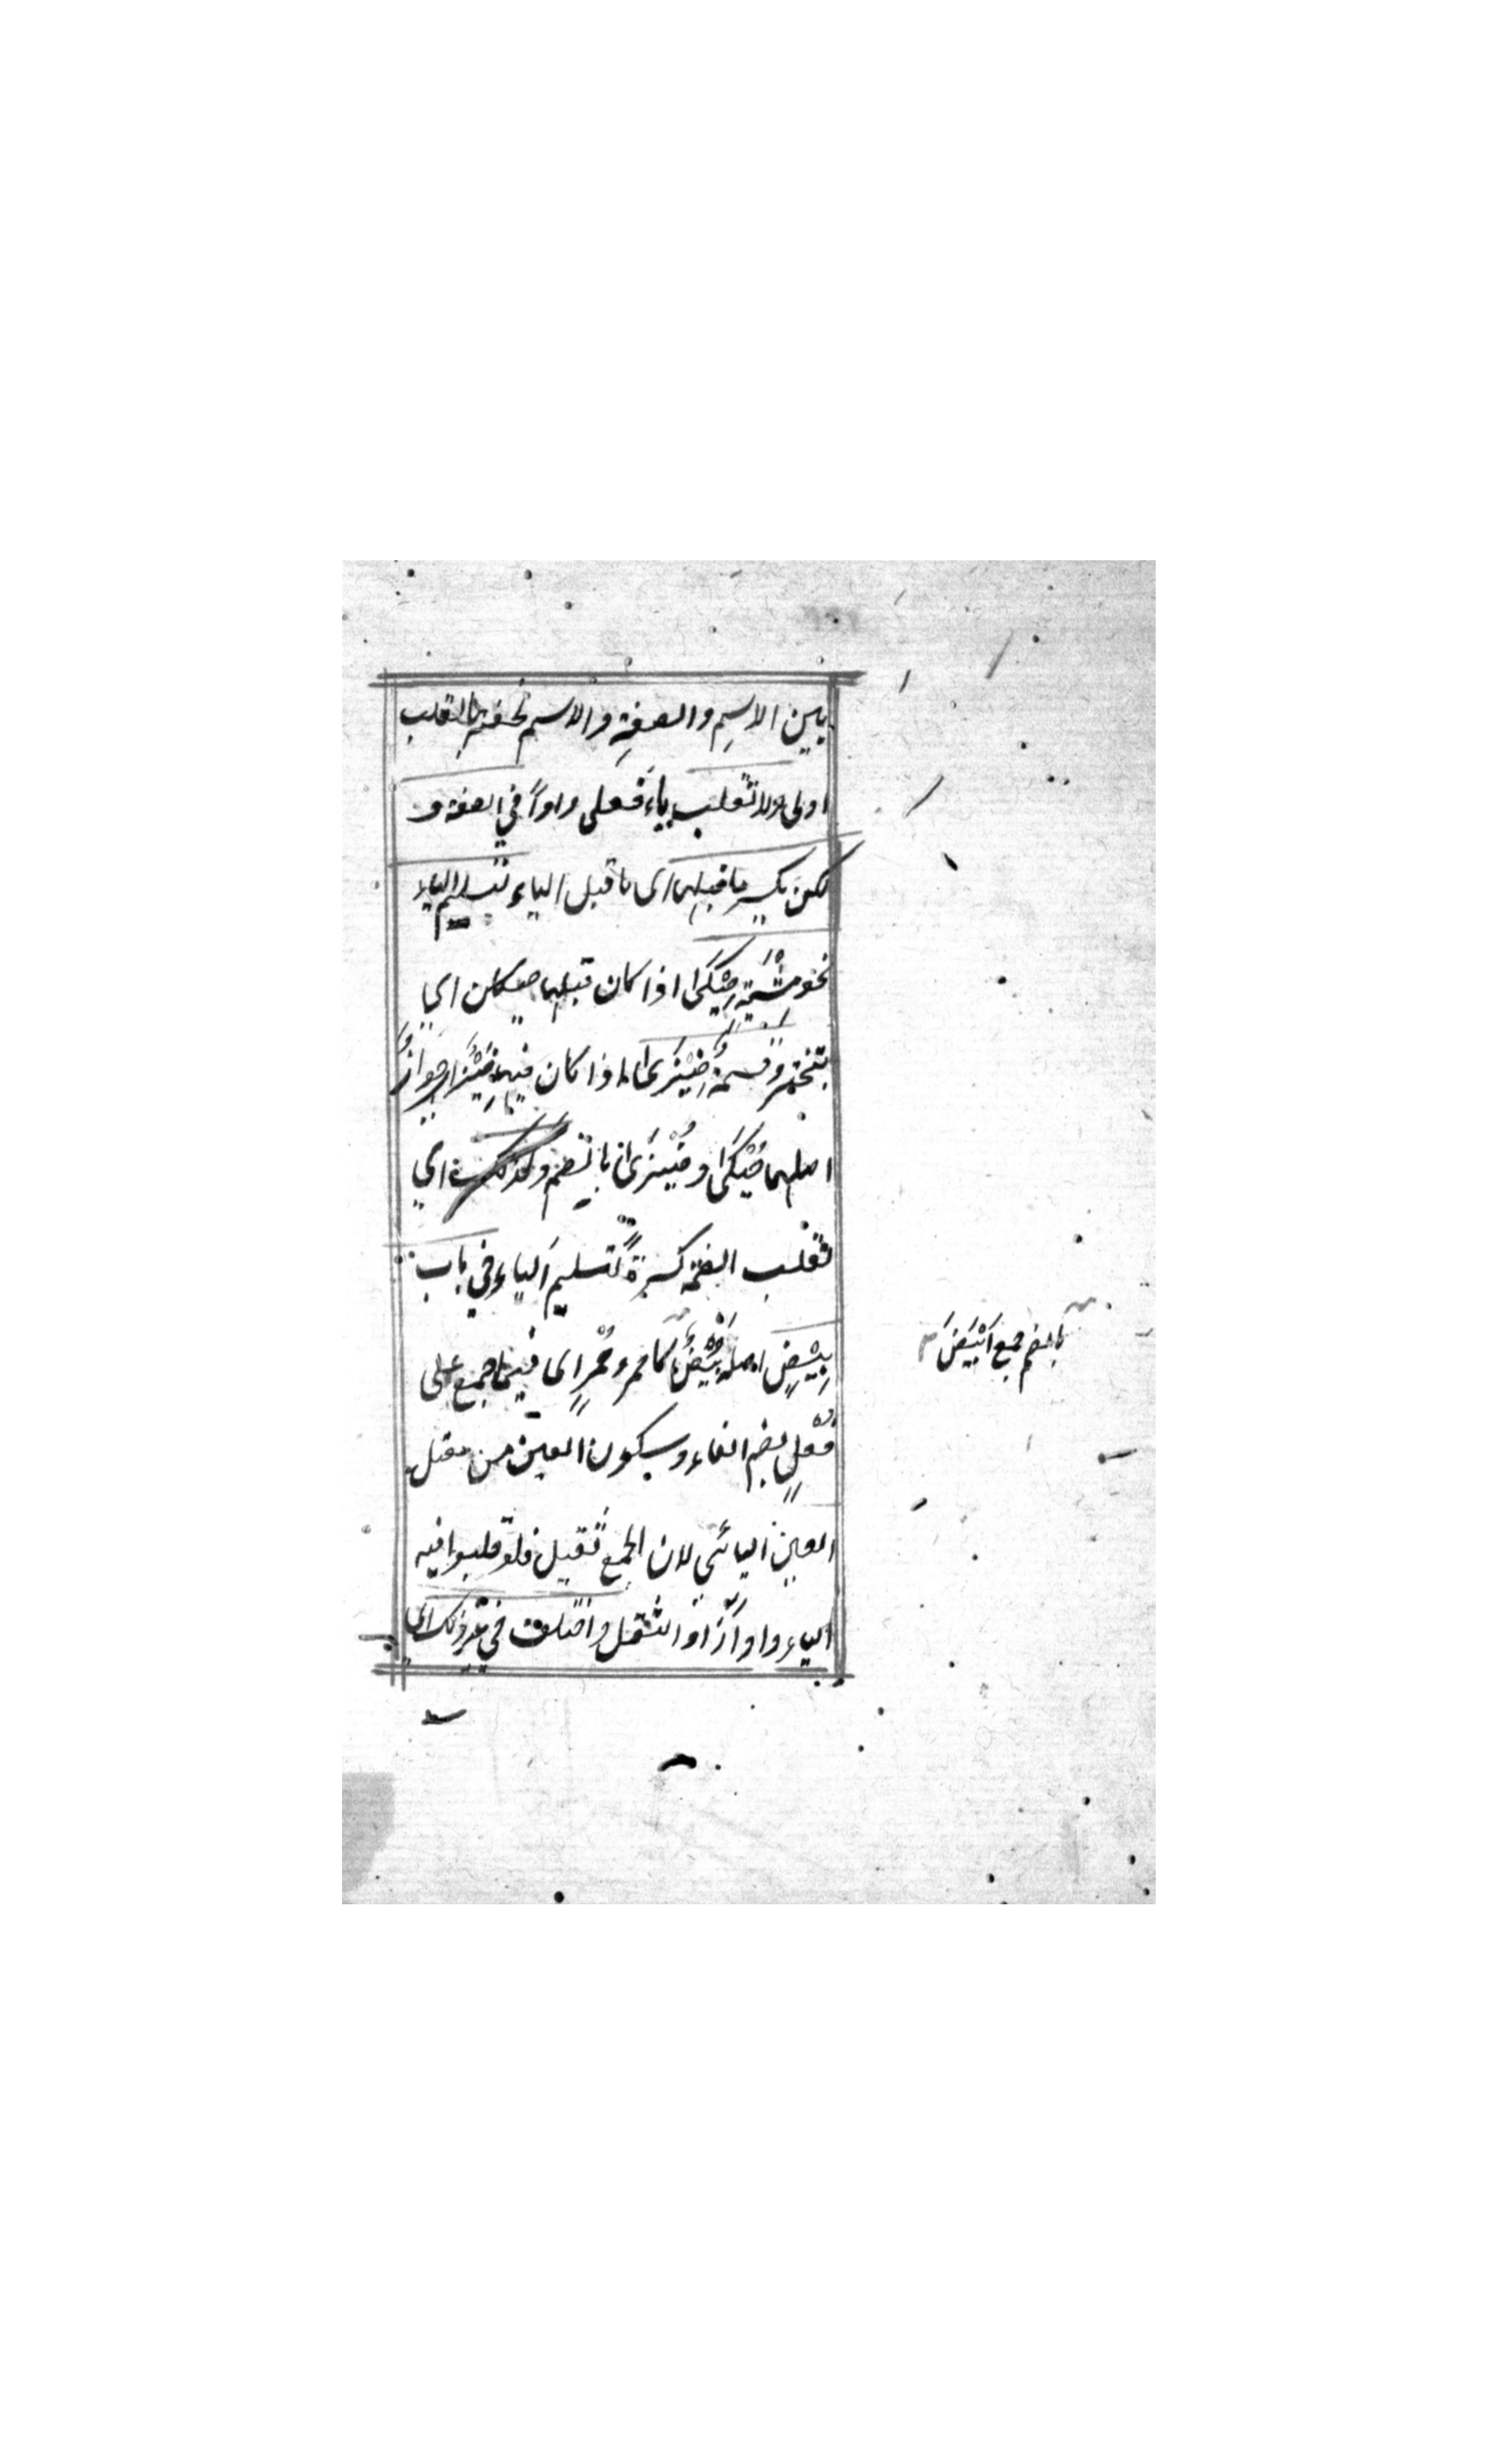 بين الاسِمِ والصفةِ والاسم لخفته بالقلب
اولى ولا تقلب ياءُ فُعلى واواً في الصفة و
لكن يكسر ما قبلها اى ما قبل الياء لتسليم الياء
نحو مِشْيَةٍ حِيْكَىٰ اذا كان فيها حيكان اي
تبختر وقسمةٍ ضِيْزىٰ اذا كان فيها
اصلهما حُيْكىٰ وضُيْزىٰ بالضم وكذلك اي
تقلب الضمة كسرةً لتسليم الياء في باب
بِيْضٍ اصله بُيْضٌ كاحمر وحُمْرٍ اى فيما جمع على
فُعْلٍ بضم الفاء وسكون العين من معتل
العين اليائي لان الجمع ثقيل فلو قلبوا فيه
الياء واواً زاد الثقل واختلف في غير ذلك اي
بالضم جمع اَبْيَضَ